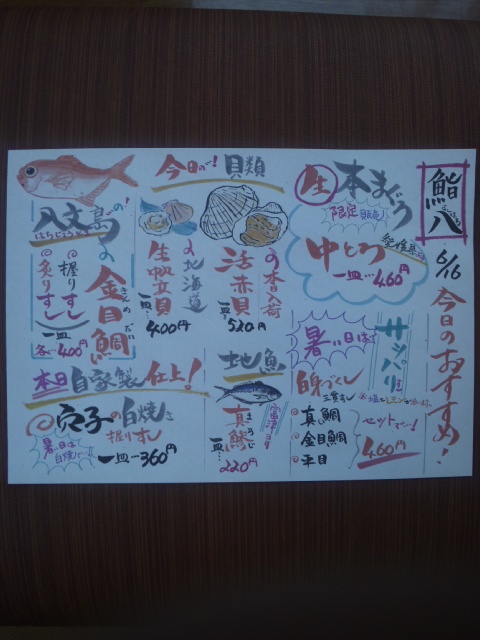 鮨八
6/16
今日のおすすめ!
生本まぐろ
限定
愛媛県
中とろ
一皿…460円
暑い日は
サッパリ
白身づくし
三貫すし
真鯛
金目鯛
平目
セットで…!
460円
今日の…!貝類
活赤貝
一皿…520円
の北海道
生帆立貝
一皿…400円
地魚
真鯵
一皿…
220円
八丈島の!
はちじょう
の金目鯛
きんめだい
握りすし
炙りすし
一皿
各…400円
本日自家製仕上!
穴子の白焼き
握りすし
暑い日は
白焼
一皿…360円